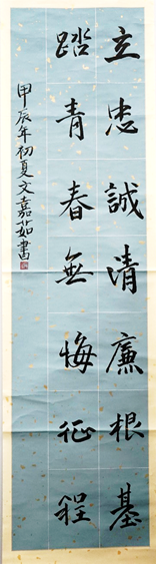 立忠誠清廉根基
踏青春無悔征程
甲辰年初夏文嘉茹書